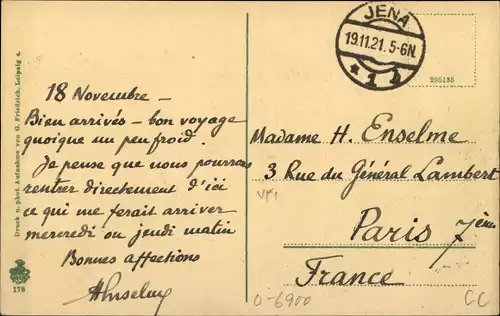 Druck u. phot. Aufnahme von G. Friedrich, Leipzig 4.
178
18 Novembre –
Bien arrivés – bon voyage
quoique un peu froid.
Je pense que nous pourrons
rentrer directement d'ici
ce qui me ferait arriver
mercredi ou jeudi matin
Bonnes affections
HEnselme
JENA
19.11.21. 5-6N.
* 1 
295135
Madame H. Enselme
3 Rue du Général Lambert
Paris 7ème
France
0-6900
CC